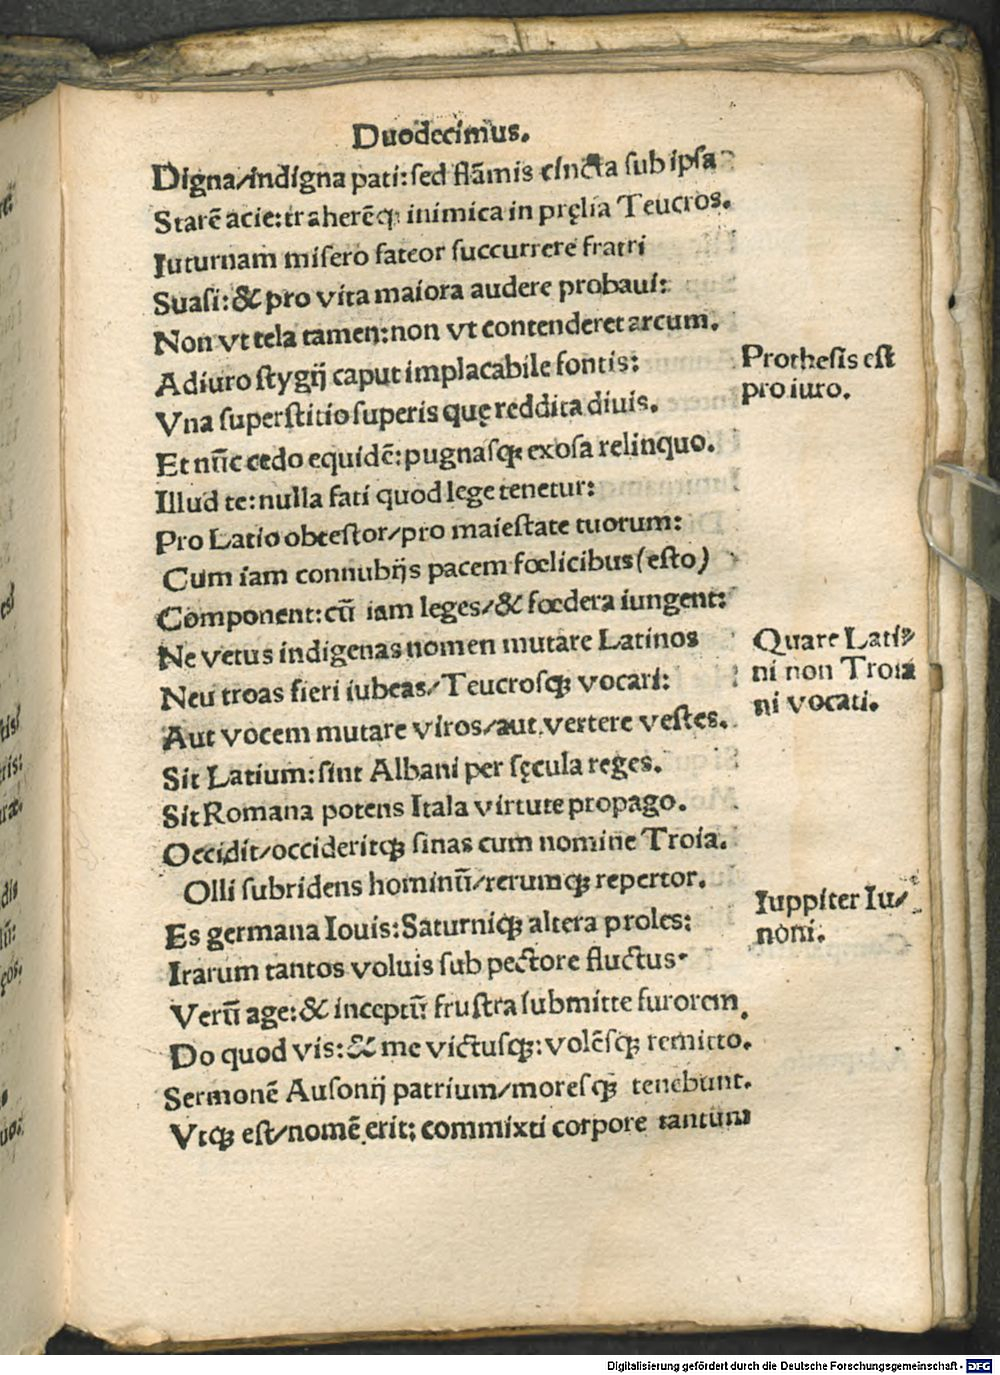 Duodecimus.
Digna/indigna pati: sed flãmis cincta sub ipsa
Starẽ acie: traherẽq; inimica in pręlia Teucros.
Iuturnam misero fateor succurrere fratri
Suasi: & pro vita maiora audere probaui:
Non vt tela tamen: non vt contenderet arcum.
Adiuro stygij caput implacabile fontis:
Prothesis est
pro iuro.
Vna superstitio superis quę reddita diuis.
Et nũc cedo equidẽ: pugnasq; exosa relinquo.
Illud te: nulla fati quod lege tenetur:
Pro Latio obtestor/pro maiestate tuorum:
Cum iam connubijs pacem fœlicibus (esto)
Component: cũ iam leges/& fœdera iungent:
Ne vetus indigenas nomen mutare Latinos
Quare Lati-
ni non Troia
ni vocati.
Neu troas fieri iubeas/Teucrosq; vocari:
Aut vocem mutare viros/aut vertere vestes.
Sit Latium: sint Albani per sęcula reges.
Sit Romana potens Itala virtute propago.
Occidit/occideritq; sinas cum nomine Troia.
Olli subridens hominũ/rerumq; repertor.
Iuppiter Iu/
noni.
Es germana Iouis: Saturniq; altera proles:
Irarum tantos voluis sub pectore fluctus.
Verũ age: & inceptũ frustra submitte furorem.
Do quod vis: & me victusq;: volẽsq; remitto.
Sermonẽ Ausonij patrium/moresq; tenebunt.
Vtq; est/nomẽ erit: commixti corpore tantum
Digitalisierung gefördert durch die Deutsche Forschungsgemeinschaft - DFG